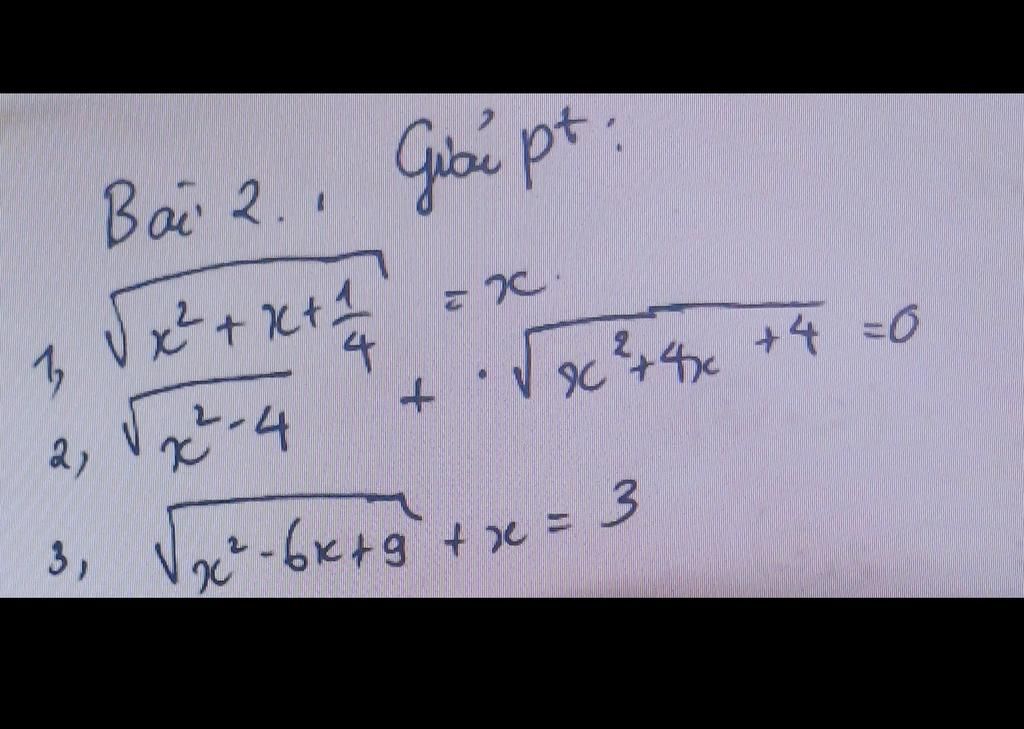 Bài 2. Giải pt:
1, √(x² + x + 1/4) = x
2, √(x² - 4) + √(x² + 4x + 4) = 0
3, √(x² - 6x + 9) + x = 3